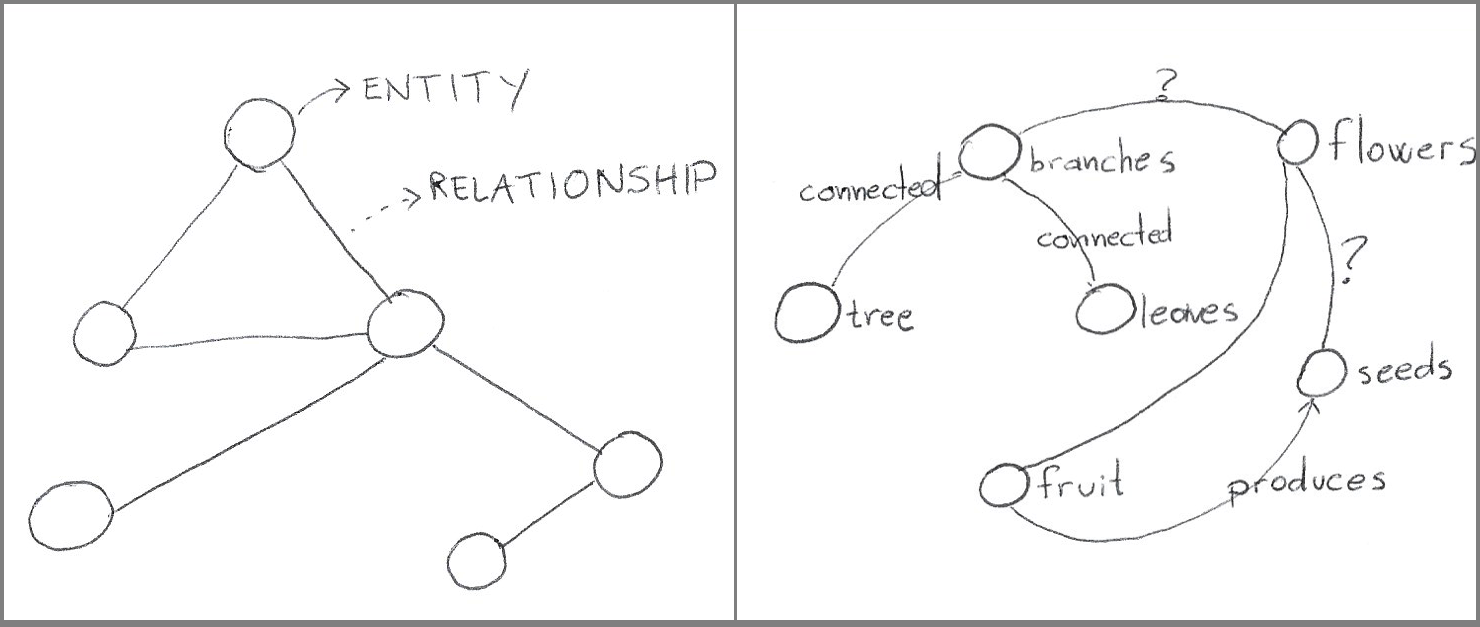 ENTITY
RELATIONSHIP
?
branches
flowers
connected
connected
tree
leaves
?
seeds
fruit
produces